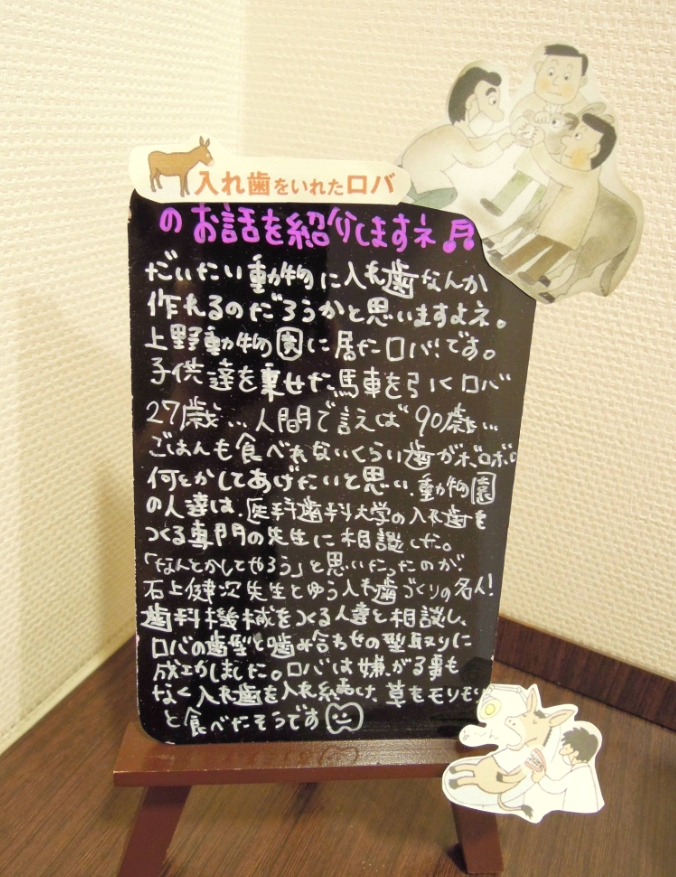 入れ歯をいれたロバ
のお話を紹介しますネ♬
だいたい動物に入れ歯なんか
作れるのだろうかと思いますよネ。
上野動物園に居たロバです。
子供達を乗せた馬車を引くロバ
27歳…人間で言えば90歳…
ごはんも食べれないくらい歯がボロボロ
何とかしてあげたいと思い、動物園
の人達は、医科歯科大学の入れ歯を
つくる専門の先生に相談した。
「なんとかしてやろう」と思いたったのが
石上健次先生とゆう入れ歯づくりの名人!
歯科機械をつくる人達と相談し、
ロバの歯型と噛み合わせの型取りに
成功しました。ロバは嫌がる事も
なく入れ歯を入れ続け、草をモリモリ
と食べたそうです